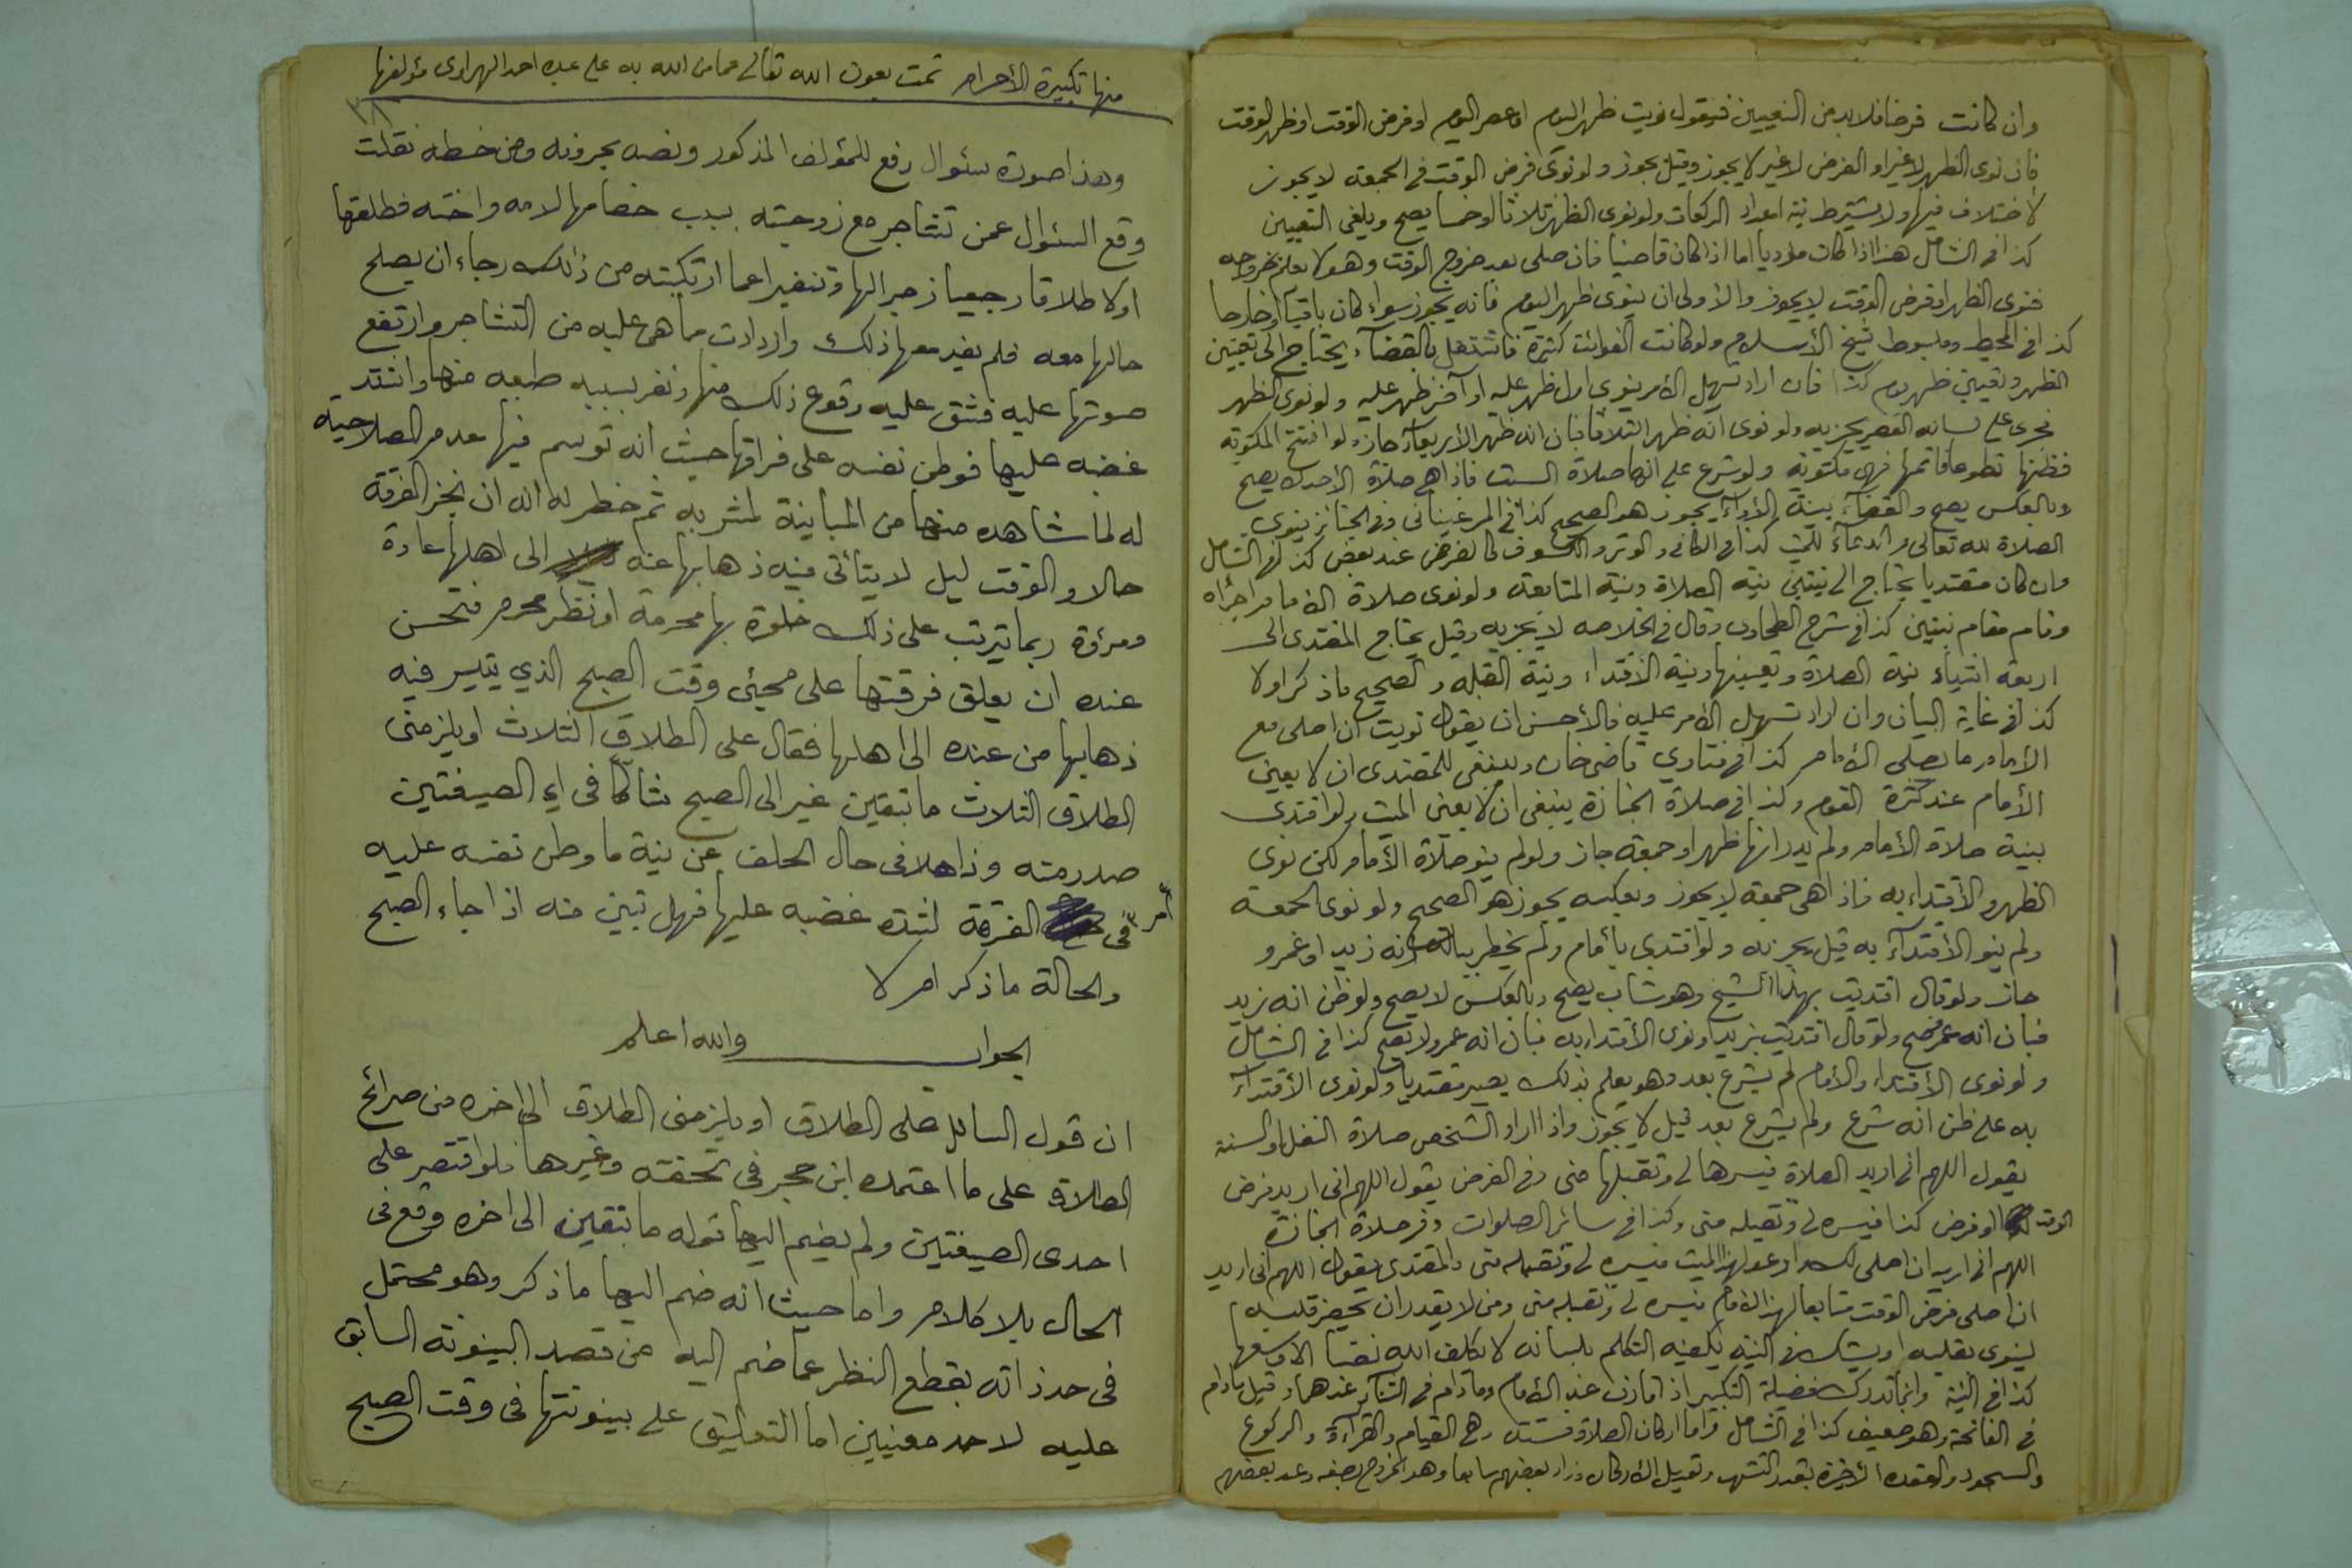 وان كانت فرضا فلابد من التعيين فيقول نويت ظهر اليوم او عصر اليوم او فرض الوقت او ظهر الوقت
فان نوى الظهر لاغير او الفرض لاغير لا يجوز وقيل يجوز ولو نوى فرض الوقت في الجمعة لا يجوز
لاختلاف فيها ولا يشترط نية اعداد الركعات ولو نوى الظهر ثلاثا او خمسا يصح ويلغى التعيين
كذا في الشامل هذا اذا كان مؤديا اما اذا كان قاضيا فان صلى بعد خروج الوقت وهو لا يعلم بخروجه
فنوى الظهر او فرض الوقت لا يجوز والاولى ان ينوى ظهر اليوم فانه يجوز سواء كان باقيا او خارجا
كذا في المحيط ومبسوط شيخ الأسلام ولو كانت الفوائت كثيرة فاشتغل بالقضآء يحتاج الى تعيين
الظهر وتعيين ظهر يوم كذا فان اراد تسهيل الأمر ينوى اول ظهر عليه او آخر ظهر عليه ولو نوى الظهر
فجرى على لسانه العصر يجزيه ولو نوى انه ظهر الثلاثا فبان انه ظهر الأربعآء جاز ولو افتتح المكتوبة
فظنها تطوعا فاتمها فهى مكتوبة ولو شرع على انها صلاة السبت فاذا هى صلاة الاحد لا يصح
وبالعكس يصح والقضآء بنية الأدآء يجوز هو الصحيح كذا في المرغيناني وفي الجنائز ينوى
الصلاة لله تعالى والدعآء للميت كذا في الكافي والوتر والكسوف كالفرض عند بعض كذا في الشامل
وان كان مقتديا يحتاج الى نيتين نية الصلاة ونية المتابعة ولو نوى صلاة الامام اجزأه
وقام مقام نيتين كذا في شرح الطحاوى وقال في الخلاصه لا يجزيه وقيل يحتاج المقتدى الى
اربعة اشياء نية الصلاة وتعيينها ونية الأقتداء ونية القبلة والصحيح ما ذكر اولا
كذا في غاية البيان وان اراد تسهيل الأمر عليه فالأحسن ان يقول نويت ان اصلى مع
الأمام ما يصلى الأمام كذا في فتاوي قاضى خان وينبغى للمقتدى ان لا يعين
الأمام عند كثرة القوم وكذا في صلاة الجنازة ينبغى ان لا يعين الميت ولو اقتدى
بنية صلاة الأمام ولم يدر انها ظهر او جمعة جاز ولو لم ينو صلاة الأمام لكن نوى
الظهر والأقتداء به فاذا هى جمعة لا يجوز وبعكسه يجوز هو الصحيح ولو نوى الجمعة
ولم ينو الأقتدآء به قيل يجزيه ولو اقتدى بأمام ولم يخطر بباله انه زيد او عمرو
جاز ولو قال اقتديت بهذا الشيخ وهو شاب يصح وبالعكس لا يصح ولو ظن انه زيد
فبان انه عمر صح ولو قال اقتديت بزيد او نوى الأقتداء به فبان انه عمرو لا يصح كذا في الشامل
ولو نوى الأقتداء والأمام لم يشرع بعد وهو يعلم بذلك يصير مقتديا ولو نوى الأقتدآء
به على ظن انه شرع ولم يشرع بعد قيل لا يجوز واذا اراد الشخص صلاة النفل او السنة
يقول اللهم انى اريد الصلاة فيسرها لى وتقبلها منى وفي الفرض يقول اللهم انى اريد فرض
الوقت او فرض كذا فيسره لى وتقبله منى وكذا في سائر الصلوات وفي صلاة الجنازة
اللهم انى اريد ان اصلى لك وادعو لهذا الميت فيسره لى وتقبله منى والمقتدى يقول اللهم انى اريد
ان اصلى فرض الوقت متابعا لهذا الأمام فيسره لى وتقبله منى ومن لا يقدر ان يحضر قلبه
لينوى بقلبه او يشك في النية يكفيه التكلم بلسانه لا يكلف الله نفسا الا وسعها
كذا في وانما تدرك فضيلة التكبير اذا قارن عند الأمام وما دام في الثنآء عندهما وقيل مادام
في الفاتحة وهو ضعيف كذا في الشامل واما اركان الصلاة فستة وهى القيام والقرآءة والركوع
والسجود والقعدة الأخيرة بقدر التشهد وتعديل الأركان وزاد بعضهم سابعا وهو الخروج بصنعه وعد بعضهم
منها تكبيرة الأحرام تمت بعون الله تعالى مما من الله به على عبده احمد الهراوى مؤلفها
وهذا صورة سئوال رفع للمؤلف المذكور ونصه بحروفه ومن خطه نقلت
وقع السئوال عمن تشاجر مع زوجته بسبب خصامها لامه واخته فطلقها
اولا طلاقا رجعيا زجرا لها وتنفيرا عما ارتكبته من ذالك رجاء ان يصلح
حالها معه فلم يفد معها ذلك وازدادت ما هى عليه من التشاجر وارتفع
صوتها عليه فشق عليه وقوع ذلك منها ونفر بسببه طبعه منها واشتد
غضبه عليها فوطن نفسه على فراقها حيث انه توسم فيها عدم الصلاحية
له لما شاهده منها من المباينة لمشربه ثم خطر له انه ان نجز الفرقة
حالا والوقت ليل لا يتأتى فيه ذهابها عنه الى اهلها عادة
ومرؤة ربما ترتب على ذلك خلوة بها محرمة او نظر محرم فتحسن
عنده ان يعلق فرقتها على مجيئ وقت الصبح الذي يتيسر فيه
ذهابها من عنده الى اهلها فقال على الطلاق الثلاث او يلزمنى
الطلاق الثلاث ما تبقين غير الى الصبح شاكا في اي الصيغتين
صدر منه وذاهلا في حال الحلف عن نية ما وطن نفسه عليه
أمر في الفرقة لشدة غضبه عليها فهل تبين منه اذا جاء الصبح
والحالة ما ذكر ام لا
الجواب والله اعلم
ان قول السائل على الطلاق او يلزمنى الطلاق الى اخره من صرائح
الطلاق على ما اعتمده ابن حجر في تحفته وغيرها فلو اقتصر على
احدى الصيغتين ولم يضم اليها قوله ما تبقين الى اخره وقع في
الحال بلا كلام واما حيث انه ضم اليها ما ذكر وهو محتمل
في حد ذاته بقطع النظر عما ضم اليه من قصد البينونة السابق
عليه لاحد معنيين اما التعليق على بينونتها في وقت الصبح